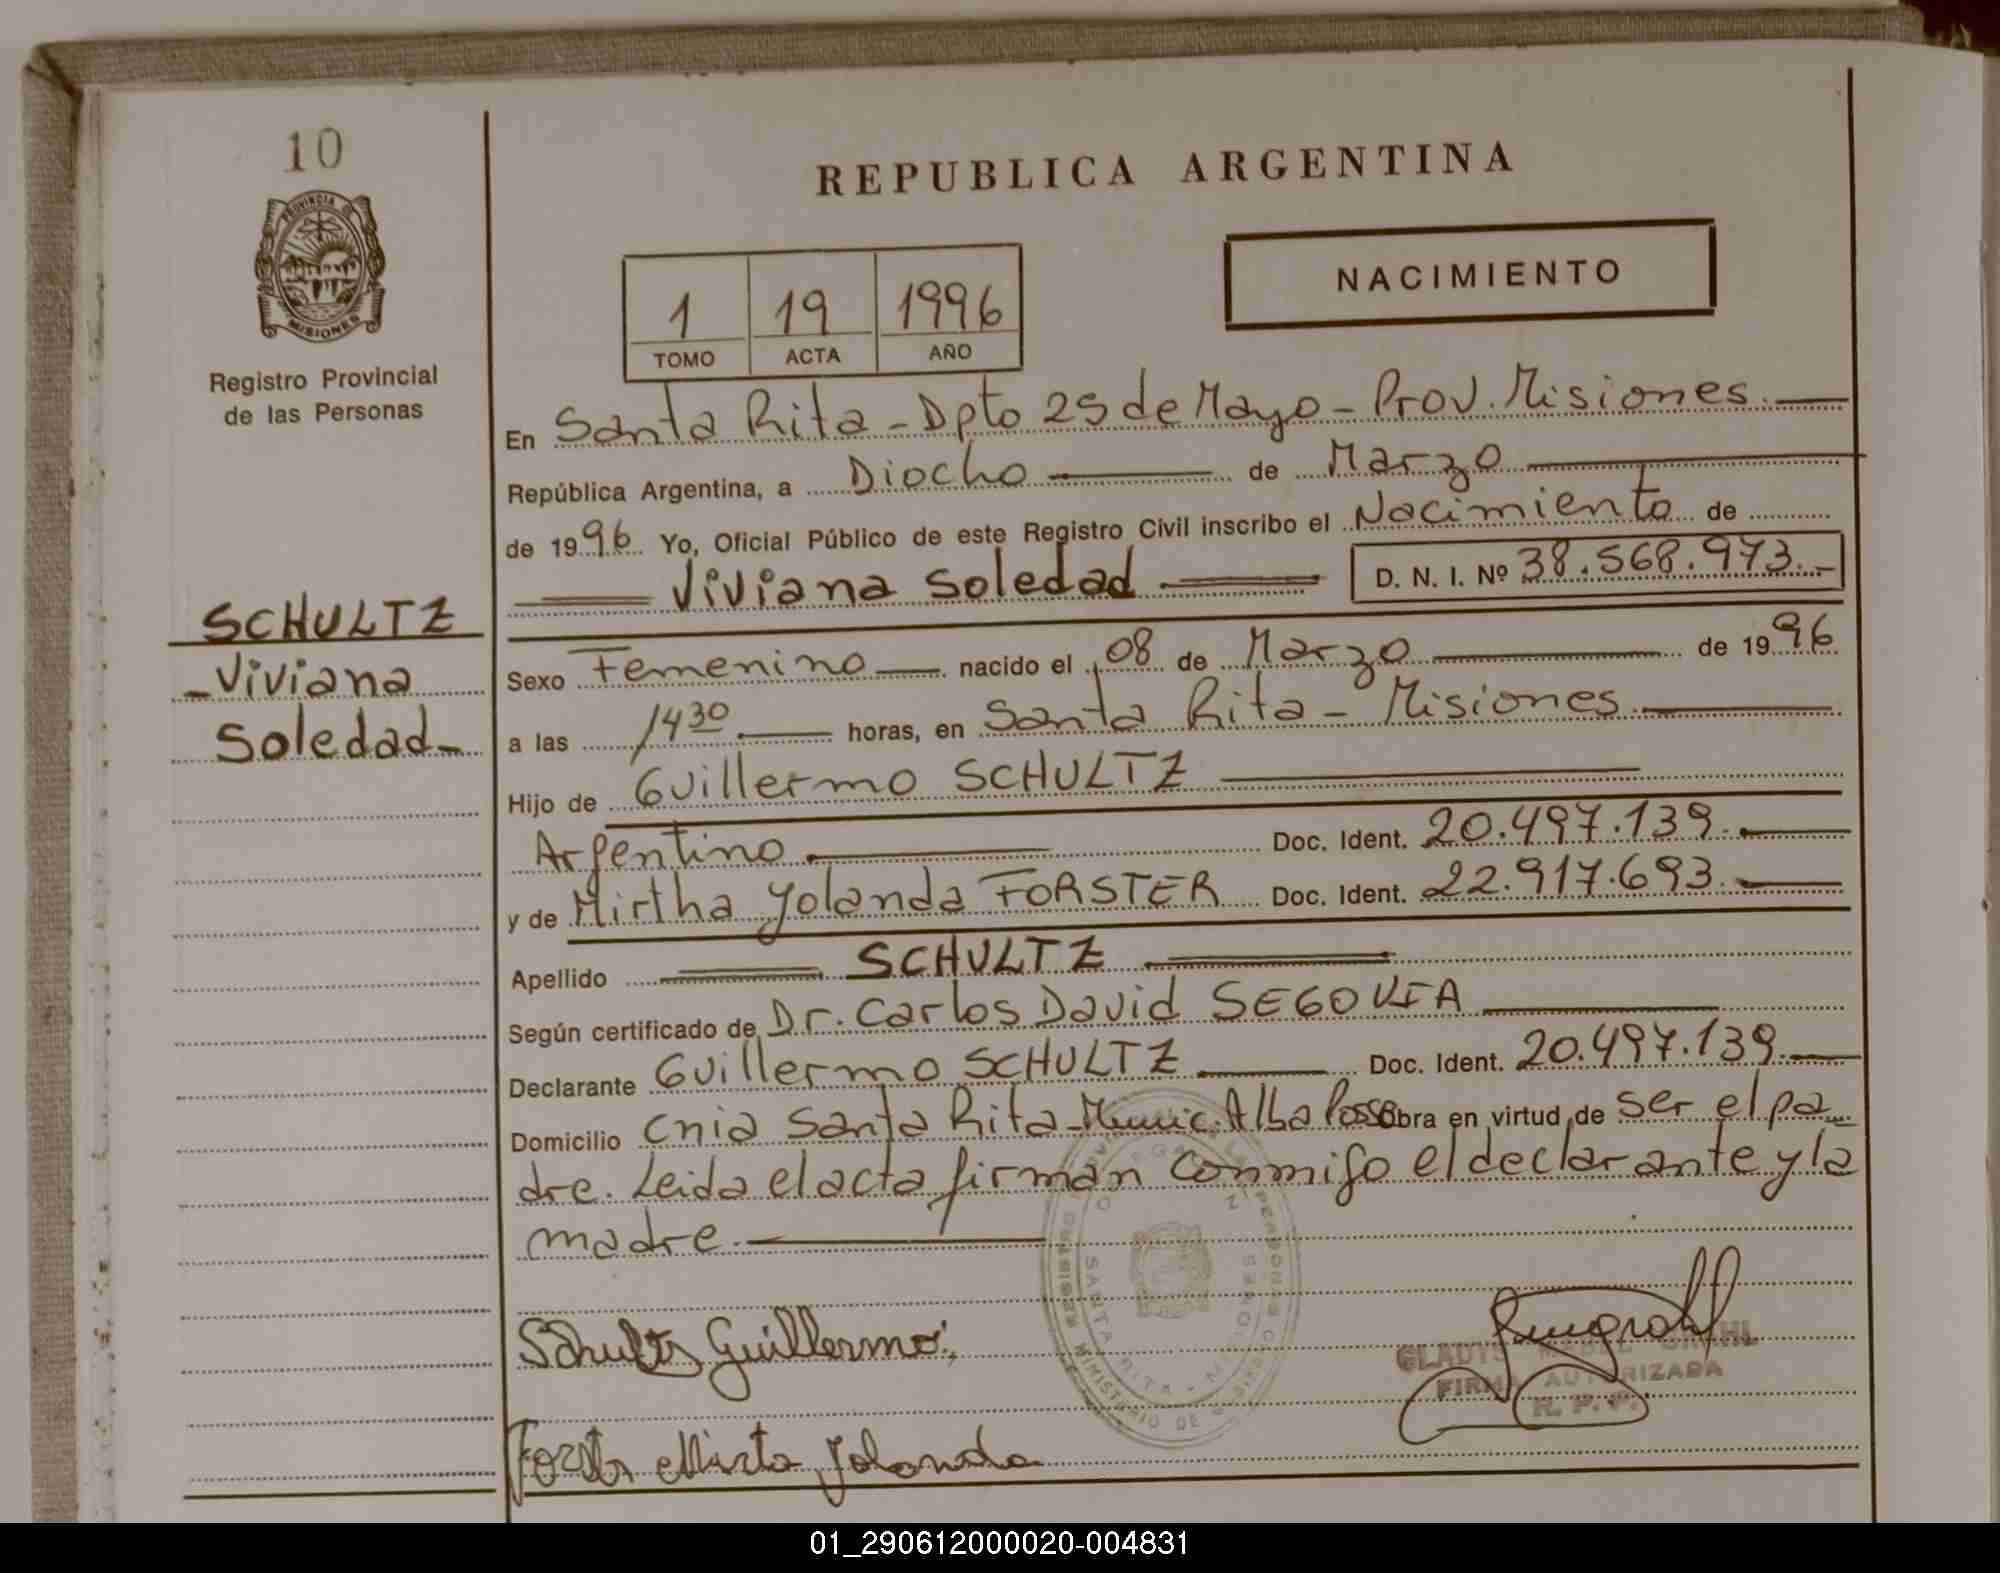 10
PROVINCIA DE
MISIONES
Registro Provincial
de las Personas
SCHULTZ
-Viviana
Soledad-
REPUBLICA ARGENTINA
NACIMIENTO
1 19 1996
TOMO ACTA AÑO
En Santa Rita - Dpto 25 de Mayo - Prov. Misiones.
República Argentina, a Diocho de Marzo
de 1996 Yo, Oficial Público de este Registro Civil inscribo el Nacimiento de
Viviana Soledad D. N. I. Nº 38.568.973.-
Sexo Femenino nacido el 08 de Marzo de 1996
a las 1430 horas, en Santa Rita - Misiones
Hijo de Guillermo SCHULTZ
Argentino Doc. Ident. 20.497.139.
y de Mirtha Yolanda FORSTER Doc. Ident. 22.917.693.
Apellido SCHULTZ
Según certificado de Dr. Carlos David SEGOVIA
Declarante Guillermo SCHULTZ Doc. Ident. 20.497.139.
Domicilio Cnia Santa Rita - Munic. Alba Posse Obra en virtud de ser el pa
dre. Leida el acta firman conmigo el declarante y la
madre.
Schultz Guillermo
GLADYS MABEL
FIRMA AUTORIZADA
R. P. P.
SANTA RITA - MISIONES
MINISTERIO DE
Forster Mirta Yolanda
01_290612000020-004831